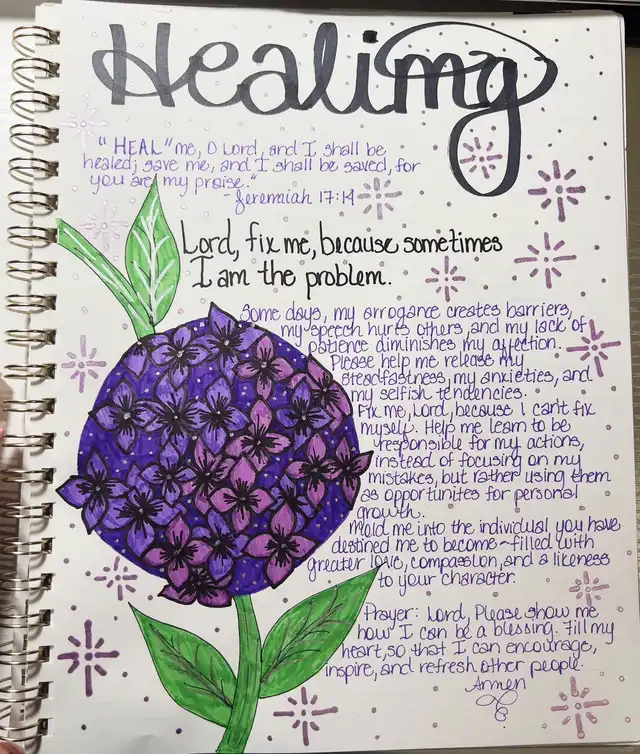 Healing
"HEAL" me, O Lord, and I shall be
healed; save me, and I shall be saved, for
you are my praise."
- Jeremiah 17:14
Lord, fix me, because sometimes
I am the problem.
Some days, my arrogance creates barriers,
my speech hurts others, and my lack of
patience diminishes my affection.
Please help me release my
steadfastness, my anxieties, and
my selfish tendencies.
Fix me, Lord, because I can't fix
myself. Help me learn to be
responsible for my actions,
instead of focusing on my
mistakes, but rather using them
as opportunites for personal
growth.
Mold me into the individual you have
destined me to become~filled with
greater love, compassion, and a likeness
to your character.
Prayer: Lord, Please show me
how I can be a blessing. Fill my
heart, so that I can encourage,
inspire, and refresh other people.
Amen